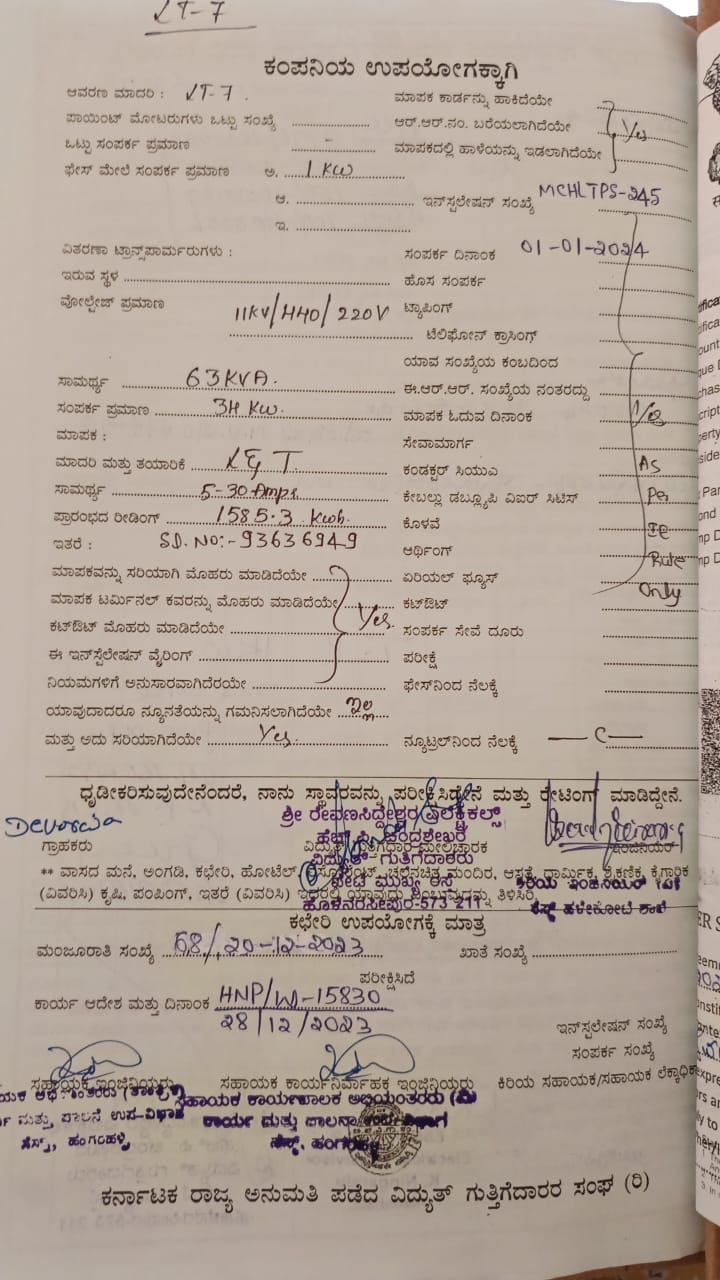 LT-7
ಕಂಪನಿಯ ಉಪಯೋಗಕ್ಕಾಗಿ
ಆವರಣ ಮಾದರಿ : LT-7. ಮಾಪಕ ಕಾರ್ಡನ್ನು ಹಾಕಿದೆಯೇ
ಪಾಯಿಂಟ್ ಮೋಟರುಗಳು ಒಟ್ಟು ಸಂಖ್ಯೆ ಆರ್.ಆರ್.ನಂ. ಬರೆಯಲಾಗಿದೆಯೇ Yes
ಒಟ್ಟು ಸಂಪರ್ಕ ಪ್ರಮಾಣ - ಮಾಪಕದಲ್ಲಿ ಹಾಳೆಯನ್ನು ಇಡಲಾಗಿದೆಯೇ
ಫೇಸ್ ಮೇಲೆ ಸಂಪರ್ಕ ಪ್ರಮಾಣ ಅ. 1 KW
ಆ. ಇನ್‌ಸ್ಟಲೇಷನ್ ಸಂಖ್ಯೆ MCHLTPS-245
ಇ.
ವಿತರಣಾ ಟ್ರಾನ್ಸ್‌ಪಾರ್ಮರುಗಳು : ಸಂಪರ್ಕ ದಿನಾಂಕ 01-01-2024
ಇರುವ ಸ್ಥಳ ಹೊಸ ಸಂಪರ್ಕ
ವೋಲ್ಟೇಜ್ ಪ್ರಮಾಣ 11KV/440/220V ಟ್ಯಾಪಿಂಗ್
ಟೆಲಿಫೋನ್ ಕ್ರಾಸಿಂಗ್
ಯಾವ ಸಂಖ್ಯೆಯ ಕಂಬದಿಂದ
ಸಾಮರ್ಥ್ಯ 63KVA. ಈ.ಆರ್.ಆರ್. ಸಂಖ್ಯೆಯ ನಂತರದ್ದು
ಸಂಪರ್ಕ ಪ್ರಮಾಣ 34 KW. ಮಾಪಕ ಓದುವ ದಿನಾಂಕ Yes
ಮಾಪಕ : ಸೇವಾಮಾರ್ಗ
ಮಾದರಿ ಮತ್ತು ತಯಾರಿಕೆ L&T ಕಂಡಕ್ಟರ್ ಸಿಯುವಿ As
ಸಾಮರ್ಥ್ಯ 5-30 Amps ಕೇಬಲ್ಲು ಡಬ್ಲ್ಯೂಪಿ ವಿಐರ್ ಸಿಟಿಸ್ Per
ಪ್ರಾರಂಭದ ರೀಡಿಂಗ್ 1585.3 Kwh. ಕೊಳವೆ IE
ಇತರೆ : SD.NO:-93636949 ಆರ್ಥಿಂಗ್ Rule
ಮಾಪಕವನ್ನು ಸರಿಯಾಗಿ ಮೊಹರು ಮಾಡಿದೆಯೇ ಏರಿಯಲ್ ಫ್ಯೂಸ್ Only
ಮಾಪಕ ಟರ್ಮಿನಲ್ ಕವರನ್ನು ಮೊಹರು ಮಾಡಿದೆಯೇ Yes. ಕಟ್‌ಔಟ್
ಕಟ್‌ಔಟ್ ಮೊಹರು ಮಾಡಿದೆಯೇ ಸಂಪರ್ಕ ಸೇವೆ ದೂರು
ಈ ಇನ್‌ಸ್ಟೆಲೇಷನ್ ವೈರಿಂಗ್ ಪರೀಕ್ಷೆ
ನಿಯಮಗಳಿಗೆ ಅನುಸಾರವಾಗಿದೆರಯೇ ಫೇಸ್‌ನಿಂದ ನೆಲಕ್ಕೆ
ಯಾವುದಾದರೂ ನ್ಯೂನತೆಯನ್ನು ಗಮನಿಸಲಾಗಿದೆಯೇ ಇಲ್ಲ
ಮತ್ತು ಅದು ಸರಿಯಾಗಿದೆಯೇ Yes. ನ್ಯೂಟ್ರಲ್‌ನಿಂದ ನೆಲಕ್ಕೆ — C —
ಧೃಡೀಕರಿಸುವುದೇನೆಂದರೆ, ನಾನು ಸ್ಥಾವರವನ್ನು ಪರೀಕ್ಷಿಸಿದ್ದೇನೆ ಮತ್ತು ರೇಟಿಂಗ್ ಮಾಡಿದ್ದೇನೆ.
ಶ್ರೀ ರೇವಣಸಿದ್ದೇಶ್ವರ ಎಲೆಕ್ಟ್ರಿಕಲ್ಸ್
ಹೆಚ್. ಪಿ. ಚಂದ್ರಶೇಖರ
ಗ್ರಾಹಕರು ವಿದ್ಯುತ್ ಗುತ್ತಿಗೆದಾರ ಮೇಲ್ವಿಚಾರಕ
ವಿದ್ಯುತ್ ಗುತ್ತಿಗೆದಾರರು
** ವಾಸದ ಮನೆ, ಅಂಗಡಿ, ಕಛೇರಿ, ಹೋಟೆಲ್ ಚಲನಚಿತ್ರ ಮಂದಿರ, ಆಸ್ಪತ್ರೆ, ಧಾರ್ಮಿಕ, ಶೈಕ್ಷಣಿಕ, ಕೈಗಾರಿಕ
ಪೇಟೆ ಮುಖ್ಯ ರಸ್ತೆ ಕಿರಿಯ ಇಂಜಿನಿಯರ್
(ವಿವರಿಸಿ) ಕೃಷಿ, ಪಂಪಿಂಗ್, ಇತರೆ (ವಿವರಿಸಿ) ತಿಳಿಸಿರಿ
ಹೊಳೆನರಸೀಪುರ-573 211 ಸೆಸ್ಕ್ ಹಳೇಕೋಟೆ ಶಾಖೆ
ಕಛೇರಿ ಉಪಯೋಗಕ್ಕೆ ಮಾತ್ರ
ಮಂಜೂರಾತಿ ಸಂಖ್ಯೆ 68/20-12-2023 ಖಾತೆ ಸಂಖ್ಯೆ
ಪರೀಕ್ಷಿಸಿದೆ
ಕಾರ್ಯ ಆದೇಶ ಮತ್ತು ದಿನಾಂಕ HNP/W-15830
28/12/2023 ಇನ್‌ಸ್ಟಲೇಷನ್ ಸಂಖ್ಯೆ
ಸಂಪರ್ಕ ಸಂಖ್ಯೆ
ಸಹಾಯಕ ಇಂಜಿನಿಯರು ಸಹಾಯಕ ಕಾರ್ಯನಿರ್ವಾಹಕ ಇಂಜಿನಿಯರು ಕಿರಿಯ ಸಹಾಯಕ/ಸಹಾಯಕ ಲೆಕ್ಕಾಧಿಕ
ಸಹಾಯಕ ಕಾರ್ಯಪಾಲಕ ಅಭಿಯಂತರರು (ವಿ)
ಮತ್ತು ಪಾಲನೆ ಉಪ-ವಿಭಾಗ ಕಾರ್ಯ ಮತ್ತು ಪಾಲನಾ ವಿಭಾಗ
ಸೆಸ್ಕ್, ಹಂಗರಹಳ್ಳಿ ಸೆಸ್ಕ್, ಹಂಗರಹಳ್ಳಿ
ಕರ್ನಾಟಕ ರಾಜ್ಯ ಅನುಮತಿ ಪಡೆದ ವಿದ್ಯುತ್ ಗುತ್ತಿಗೆದಾರರ ಸಂಘ (ರಿ)